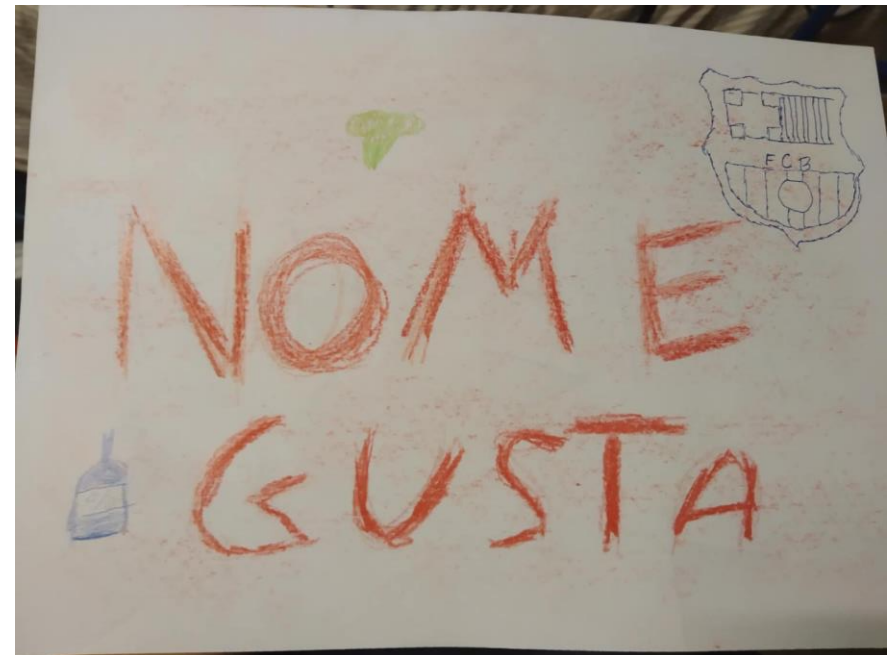 FCB
NO ME
GUSTA